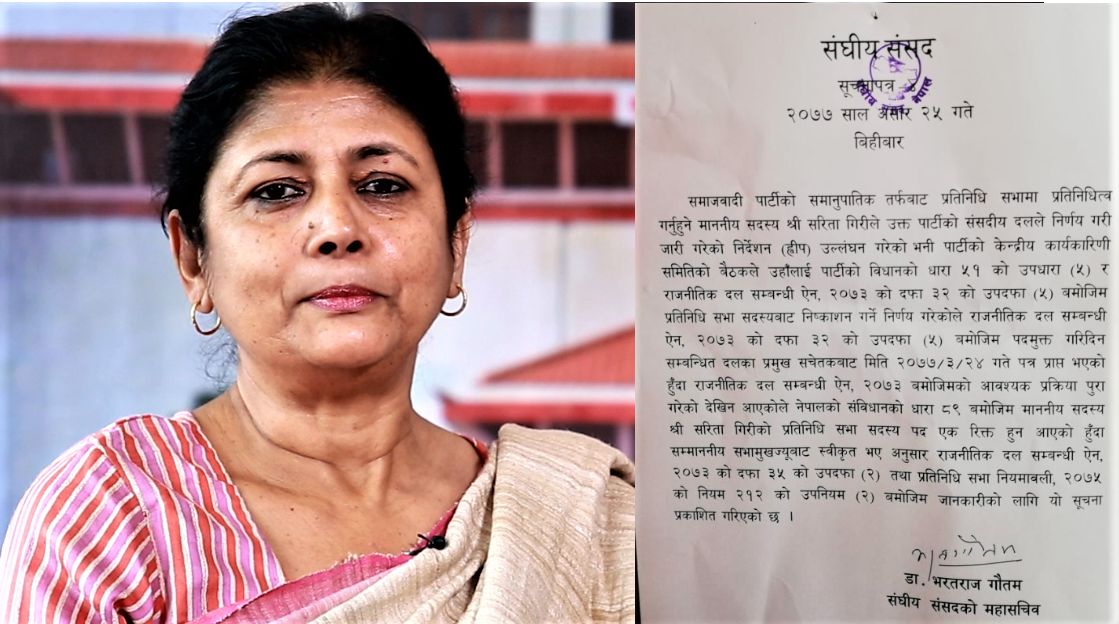 संघीय संसद
सूचनापत्र ४
२०७७ साल असार २५ गते
बिहीबार
समाजवादी पार्टीको समानुपातिक तर्फबाट प्रतिनिधि सभामा प्रतिनिधित्व
गर्नुहुने माननीय सदस्य श्री सरिता गिरीले उक्त पार्टीको संसदीय दलले निर्णय गरी
जारी गरेको निर्देशन (ह्वीप) उल्लंघन गरेको भनी पार्टीको केन्द्रीय कार्यकारिणी
समितिको बैठकले उहाँलाई पार्टीको विधानको धारा ५१ को उपधारा (५) र
राजनीतिक दल सम्बन्धी ऐन, २०७३ को दफा ३२ को उपदफा (५) बमोजिम
प्रतिनिधि सभा सदस्यबाट निष्काशन गर्ने निर्णय गरेकोले राजनीतिक दल सम्बन्धी
ऐन, २०७३ को दफा ३२ को उपदफा (५) बमोजिम पदमुक्त गरिदिन
सम्बन्धित दलका प्रमुख सचेतकबाट मिति २०७७/३/२४ गते पत्र प्राप्त भएको
हुँदा राजनीतिक दल सम्बन्धी ऐन, २०७३ बमोजिमको आवश्यक प्रक्रिया पुरा
गरेको देखिन आएकोले नेपालको संविधानको धारा ८९ बमोजिम माननीय सदस्य
श्री सरिता गिरीको प्रतिनिधि सभा सदस्य पद एक रिक्त हुन आएको हुँदा
सम्माननीय सभामुखज्यूबाट स्वीकृत भए अनुसार राजनीतिक दल सम्बन्धी ऐन,
२०७३ को दफा ३५ को उपदफा (२) तथा प्रतिनिधि सभा नियमावली, २०७५
को नियम २१२ को उपनियम (२) बमोजिम जानकारीको लागि यो सूचना
प्रकाशित गरिएको छ ।
डा. भरतराज गौतम
संघीय संसदको महासचिव